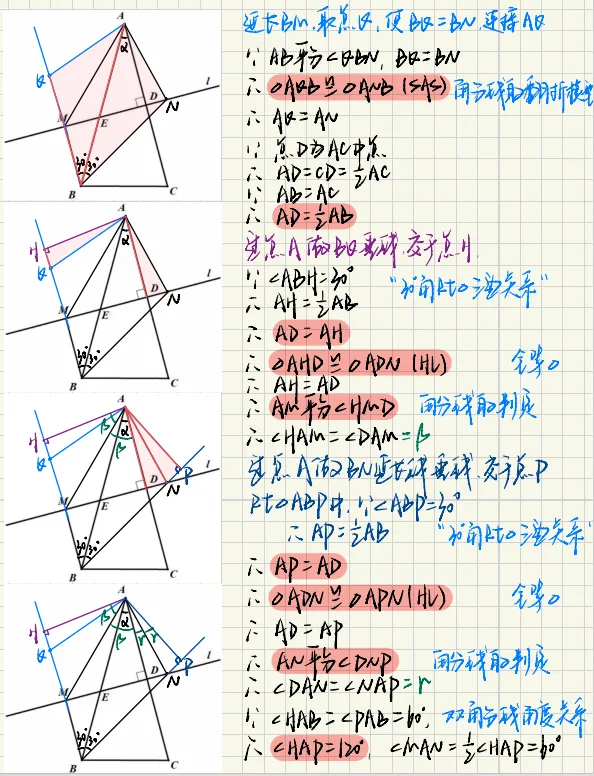 延长BM,取点Q,使BQ=BN,连接AQ
∵ AB平分∠QBN, BQ=BN
∴ △AQB≌△ANB (SAS) 角分线的翻折模型
∴ AQ=AN
∵ 点D为AC中点
∴ AD=CD=½AC
∵ AB=AC
∴ AD=½AB
过点A做BQ垂线,交于点H.
∵ ∠ABH=30° "30°角Rt△三边关系"
∴ AH=½AB
∴ AD=AH
∴ △AHD≌△ADN (HL) 全等△
∴ AH=AD
∴ AM平分∠HMD 角分线的判定
∴ ∠HAM=∠DAM=β
过点A做BN延长线垂线,交于点P
Rt△ABP中,∵∠ABP=30°
∴ AP=½AB "30°角Rt△三边关系"
∴ AP=AD
∴ △ADN≌△APN (HL) 全等△
∴ AD=AP
∴ AN平分∠DNP 角分线的判定
∴ ∠DAN=∠NAP=r
∵ ∠HAB=∠PAB=60°, 双角分线角度关系
∴ ∠HAP=120°, ∠MAN=½∠HAP=60°
A
α
Q
D
N
l
M
E
30°
30°
B
C
A
H
α
Q
D
N
l
M
E
30°
30°
B
C
A
H
β
α
β
Q
D
N
P
l
M
E
30°
30°
B
C
A
H
β
α
β
r
r
Q
D
N
P
l
M
E
30°
30°
B
C